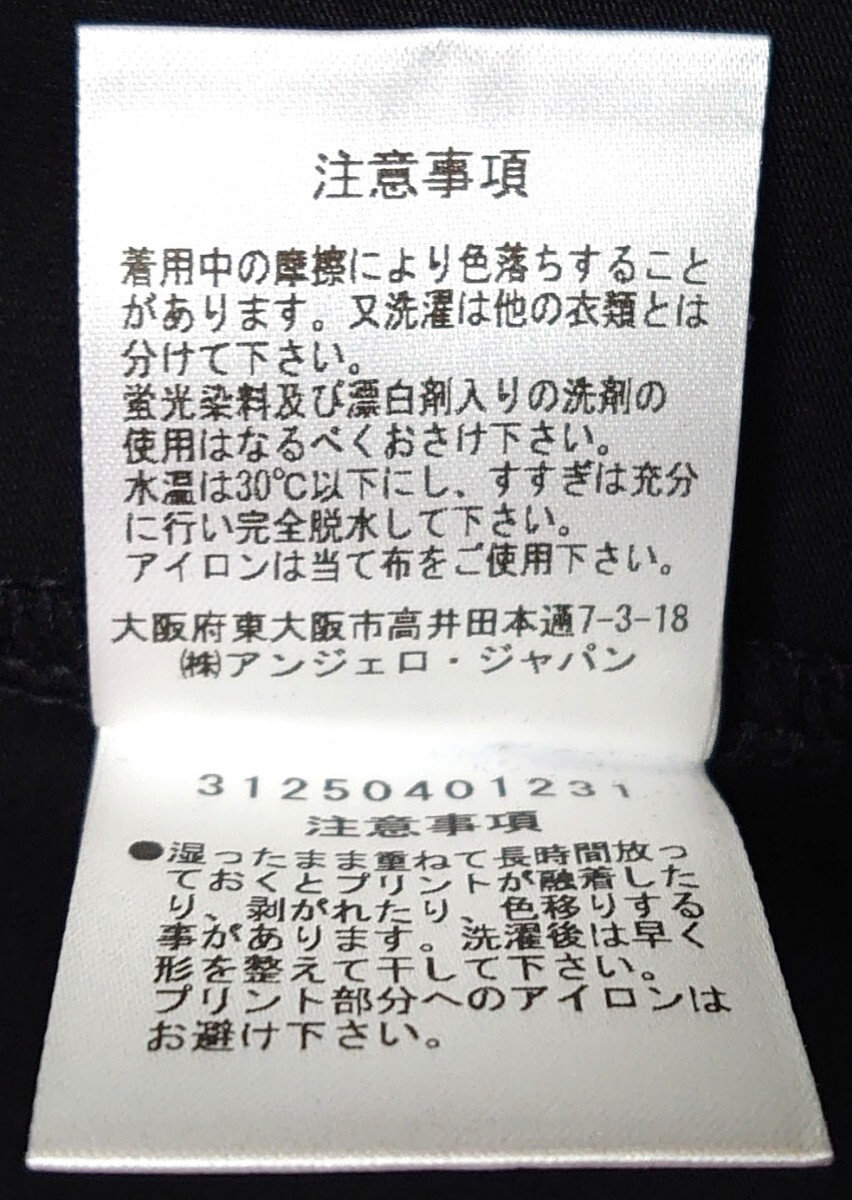 注意事項
着用中の摩擦により色落ちすること
があります。又洗濯は他の衣類とは
分けて下さい。
蛍光染料及び漂白剤入りの洗剤の
使用はなるべくおさけ下さい。
水温は30℃以下にし、すすぎは充分
に行い完全脱水して下さい。
アイロンは当て布をご使用下さい。
大阪府東大阪市高井田本通7-3-18
㈱アンジェロ・ジャパン
31250401231
注意事項
●湿ったまま重ねて長時間放っ
ておくとプリントが融着した
り、剥がれたり、色移りする
事があります。洗濯後は早く
形を整えて干して下さい。
プリント部分へのアイロンは
お避け下さい。